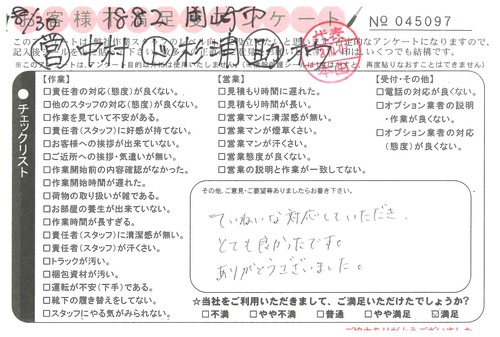 8/30 882 岡崎市
お客様満足アンケート
No 045097
【作業】
□責任者の対応(態度)が良くない。
□他のスタッフの対応(態度)が良くない。
□作業を見ていて不安がある。
□責任者(スタッフ)に好感が持てない。
□お客様への挨拶が出来ていない。
□ご近所への挨拶・気遣いが無い。
□作業開始前の内容確認がなかった。
□作業開始時間が遅れた。
□荷物の取り扱いが雑である。
□お部屋の養生が出来ていない。
□作業時間が長すぎる。
□責任者(スタッフ)に清潔感が無い。
□責任者(スタッフ)が汗くさい。
□トラックが汚い。
□梱包資材が汚い。
□運転が不安(下手)である。
□靴下の履き替えをしてない。
□スタッフにやる気がみられない。
【営業】
□見積もり時間に遅れた。
□見積もり時間が長い。
□営業マンに清潔感が無い。
□営業マンが煙草くさい。
□営業マンが汗くさい。
□営業態度が良くない。
□営業の説明と作業が一致してない。
【受付・その他】
□電話の対応が良くない。
□オプション業者の説明
・作業が良くない。
□オプション業者の対応
(態度)が良くない。
チェックリスト
その他、ご意見・ご要望等ありましたらお書き下さい。
ていねいな対応していただき、
とても良かったです。
ありがとうございました。
☆当社をご利用いただきまして、ご満足いただけたでしょうか?
□不満 □やや不満 □普通 □やや満足 ☑満足
ご協力ありがとうございました